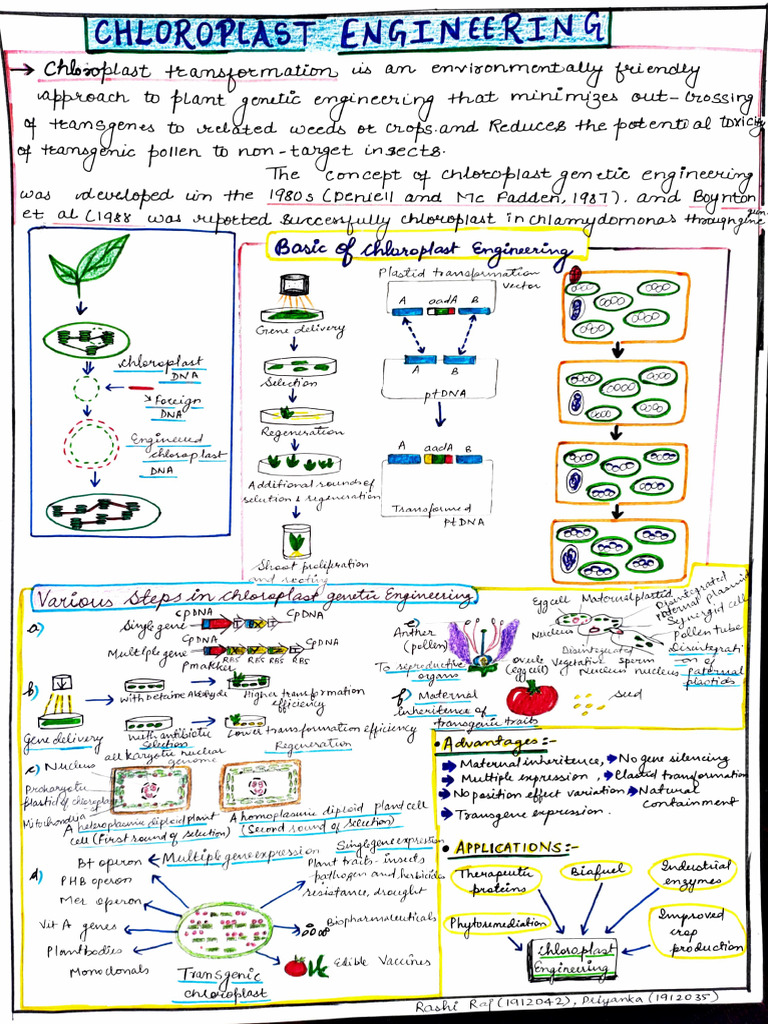 CHLOROPLAST ENGINEERING
→ Chloroplast transformation is an environmentally friendly
approach to plant genetic engineering that minimizes out-crossing
of transgenes to related weeds or crops. and Reduces the potential toxicity
of transgenic pollen to non-target insects.
The concept of chloroplast genetic engineering
was developed in the 1980s (Deniell and Mc Fadden, 1987). and Boynton
et al (1988 was reported successfully chloroplast in chlamydomonas through gene gun.
chloroplast
DNA
Foreign
DNA
Engineered
chloroplast
DNA
Basic of chloroplast Engineering
Gene delivery
Selection
Regeneration
Additional rounds of
selection & regeneration
Shoot proliferation
and rooting
Plastid transformation
vector
A aadA B
A B
ptDNA
A aadA B
Transformed
ptDNA
Various Steps in chloroplast genetic Engineering
a)
CpDNA CpDNA
Single gene
CpDNA CpDNA
Multiple gene
RBS RBS RBS
b)
Gene delivery
With betaine Aldehyde
Higher transformation
efficiency
With antibiotic
Selection
Lower transformation efficiency
Regeneration
c) Nucleus
nuclear
genome
Prokaryotic
plastid of chloroplast
Mitochondria
A heteroplasmic diploid plant
cell (First round of selection)
A homoplasmic diploid plant cell
(Second round of selection)
d)
Multiple gene expression
Bt operon
PHB operon
Mer operon
Vit A genes
Plantbodies
Monoclonals
Transgenic
chloroplast
Single gene expression
Plant traits- insects
pathogen and herbicides
resistance, drought
Biopharmaceuticals
Edible Vaccines
e)
Anther
(pollen)
To reproductive
organs
ovule
(egg cell)
Egg cell
Maternal plastid
Disintegrated
maternal plasmid
Synergid cell
Pollen tube
Disintegrati
on of
paternal
plastids
Nucleus
Disintegrated
Vegetative
Nucleus
sperm
nucleus
f) Maternal
inheritence of
transgenic traits
seed
• Advantages:-
Maternal inheritence,
No gene silencing
Multiple expression,
Plastid transformation
No position effect variation
Natural
containment
Transgene expression.
• APPLICATIONS:-
Therapeutic
proteins
Biofuel
Industrial
enzymes
Phytoremediation
Improved
crop
production
chloroplast
Engineering
Rashi Raj (1912042), Priyanka (1912035)